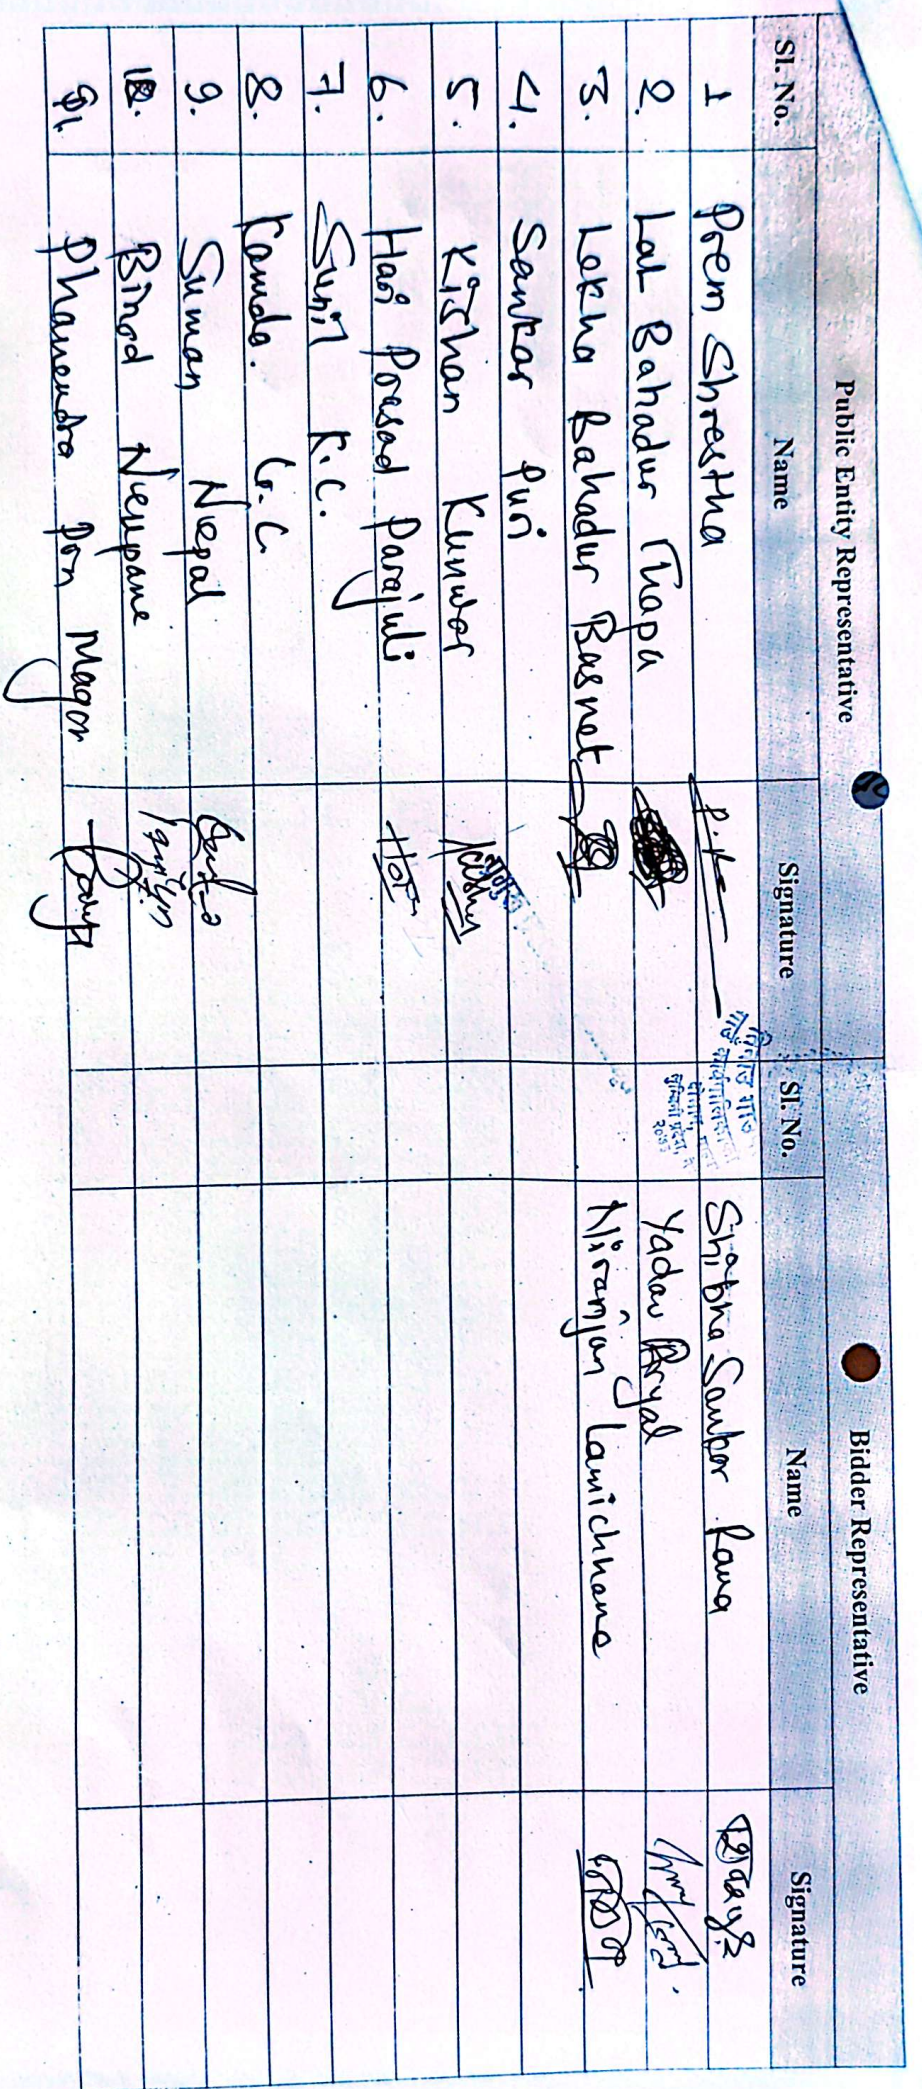 Public Entity Representative Bidder Representative
Sl. No. Name Signature Sl. No. Name Signature
1 Prem Shrestha Shobha Sankar Rana
2. Lal Bahadur Thapa Yadav Aryal
3. Lokha Bahadur Basnet Niranjan Lamichhane
4. Sankar Puri
5. Kishan Kunwor
6. Hari Prasad Parajuli
7. Sunil K.C.
8. Kamda. G.C.
9. Suman Nepal
10. Binod Neupane
11. Dhanendra Pun Magar